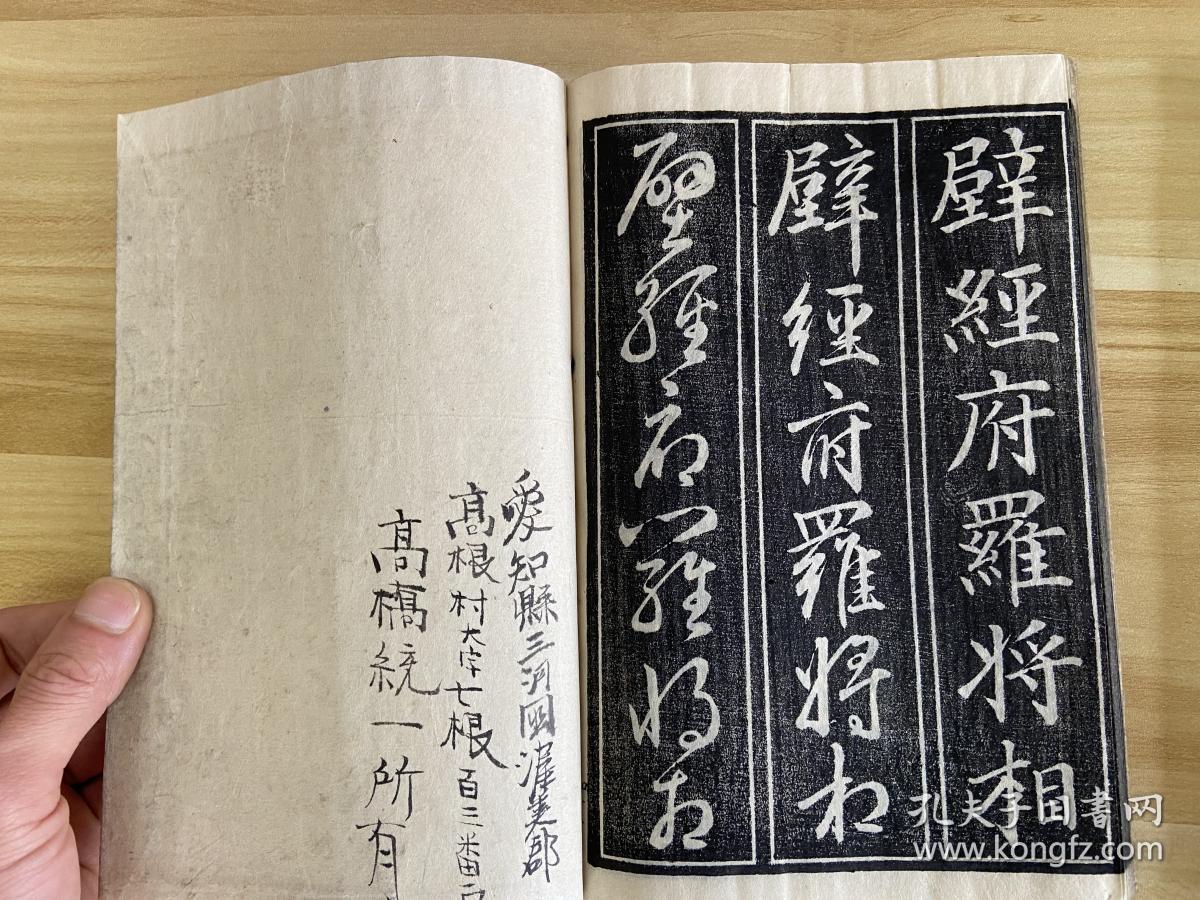 壁經府羅將相
壁經府羅將相
壁經府羅將相
愛知縣三河國渥美郡
高根村大字七根百三番戸
高橋統一所有
孔夫子旧書网
www.kongfz.com